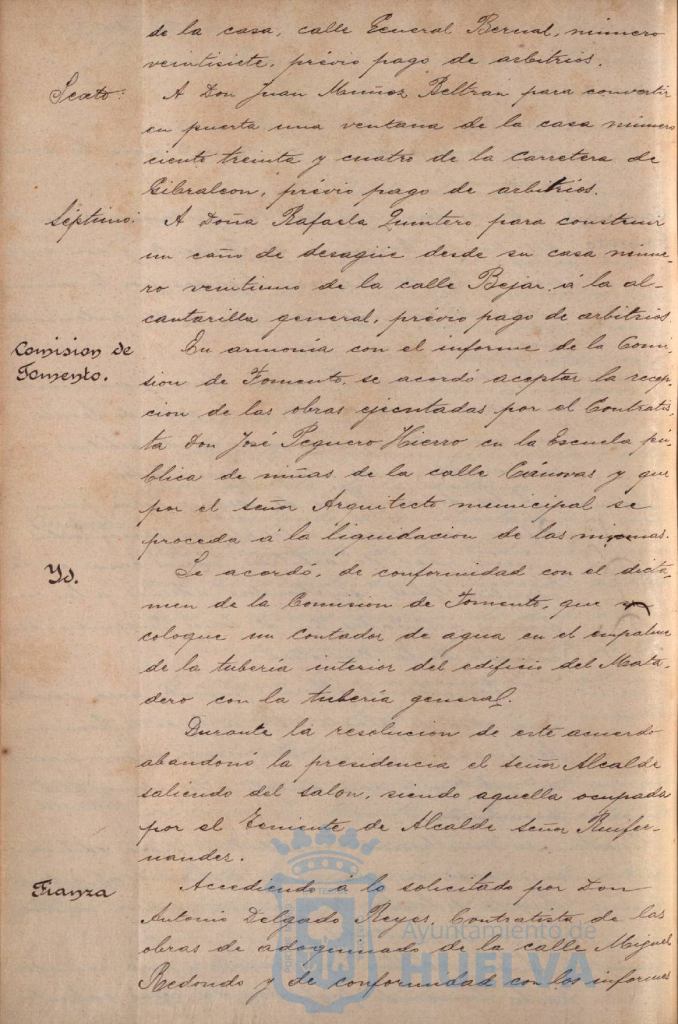 de la casa, calle General Bernal, número
veintisiete, prévio pago de arbitrios.
Sexto: A Don Juan Muñoz Beltran para convertir
en puerta una ventana de la casa número
ciento treinta y cuatro de la Carretera de
Gibraleon, prévio pago de arbitrios.
Séptimo: A Doña Rafaela Quintero para construir
un caño de desagüe desde su casa núme-
ro veintiuno de la calle Bejar, á la al-
cantarilla general, prévio pago de arbitrios
Comision de Fomento. En armonía con el informe de la Comi-
sion de Fomento, se acordó aceptar la recep-
cion de las obras ejecutadas por el Contratis-
ta Don José Peguero Hierro en la Escuela pú-
blica de niñas de la calle Cánovas y que
por el Señor Arquitecto municipal se
proceda á la liquidacion de las mismas.
Yd. Se acordó, de conformidad con el dicta-
men de la Comision de Fomento, que se
coloque un contador de agua en el empalme
de la tubería interior del edificio del Mata-
dero con la tubería general.
Durante la resolucion de este acuerdo
abandonó la presidencia el Señor Alcalde
saliendo del salon, siendo aquella ocupada
por el Teniente de Alcalde Señor Ruifer-
nandez.
Fianza Accediendo á lo solicitado por Don
Antonio Delgado Reyes, Contratista de las
obras de adoquinado de la calle Miguel
Redondo y de conformidad con los informes
Ayuntamiento de
HUELVA